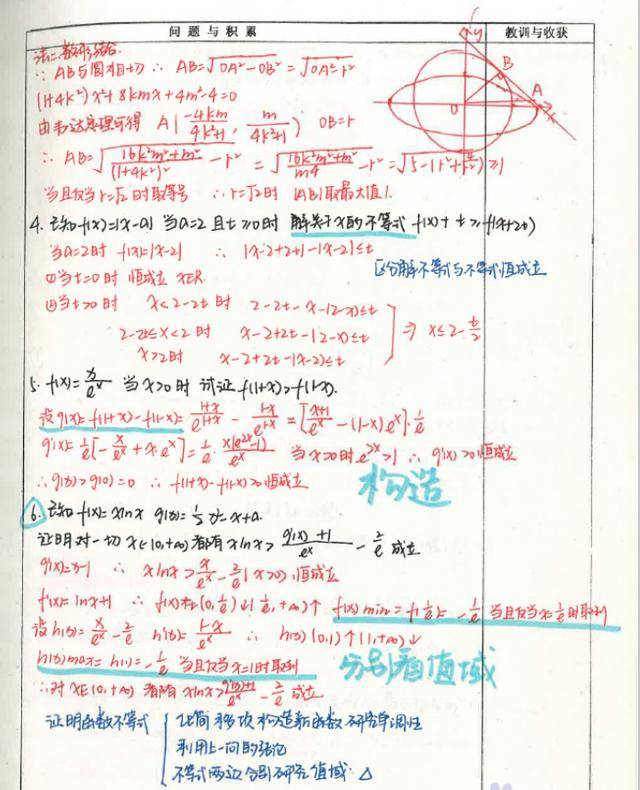 问题与积累 教训与收获
法二:数形结合.
∵ AB与圆相切 ∴ AB=√(OA²-OB²) = √(OA²-r²)
(1+4k²)x²+8kmx+4m²-4=0
由韦达定理可得 A(-4km/(4k²+1), m/(4k²+1)) OB=r
∴ AB=√((16k²m²+m²)/(1+4k²)²-r²) = √((16k²m²+m²)/m⁴-r²) = √(5-(r²+4/r²)) ≥1
当且仅当r=√2时取等号 ∴r=√2时 |AB|取最大值1.
4. 已知f(x)=|x-a| 当a=2且t≥0时 解关于x的不等式 f(x)+t≥f(x+2t)
当a=2时 f(x)=|x-2| ∴ |x-2+2t|-|x-2|≤t
区分解不等式与不等式恒成立
①当t=0时 恒成立 x∈R.
②当t>0时 x<2-2t时 2-2t-x-(2-x)≤t
2-2t≤x<2时 x-2+2t-(2-x)≤t
x>2时 x-2+2t-(x-2)≤t
⇒ x≤2-t/2
5. f(x)=x/eˣ 当x>0时 试证f(1+x)>f(1-x).
设g(x)=f(1+x)-f(1-x)=(1+x)/e^(1+x) - (1-x)/e^(1-x) = [(x+1)/eˣ-(1-x)eˣ]·1/e
g'(x)=1/e[-x/eˣ+x·eˣ]=1/e·x(e^(2x)-1)/eˣ 当x>0时,e^(2x)>1 ∴g'(x)>0恒成立
∴g(x)>g(0)=0 ∴f(1+x)-f(1-x)>0恒成立
构造
6. 已知f(x)=xlnx g(x)=1/2x²-x+a.
证明对一切x∈(0,+∞)都有xlnx>(g'(x)+1)/eˣ-2/e成立
g'(x)=x-1 ∴ xlnx>x/eˣ-2/e(x>0)恒成立
f'(x)=lnx+1 ∴f(x)在(0,1/e)↓(1/e,+∞)↑ f(x)min=f(1/e)=-1/e 当且仅当x=1/e时取到
设h(x)=x/eˣ-2/e h'(x)=(1-x)/eˣ ∴ h(x)(0,1)↑(1,+∞)↓
h(x)max=h(1)=-1/e 当且仅当x=1时取到
分别看值域
∴对x∈(0,+∞)都有xlnx>(g'(x)+1)/eˣ-2/e成立
证明函数不等式
移项构造新函数 研究单调性
利用上一问的结论
不等式两边分别研究值域 △
y
B
A
O
x